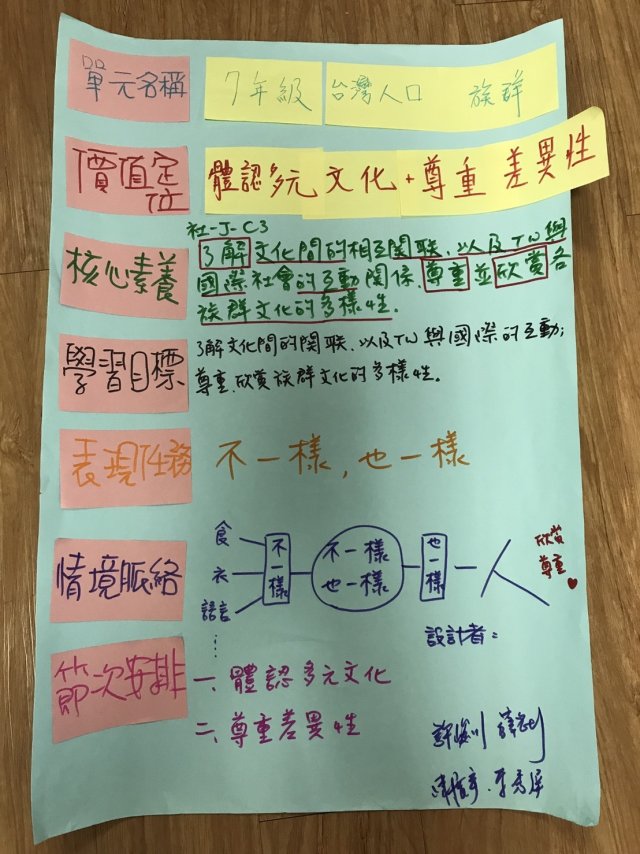 單元名稱 7年級 台灣人口 族群
價值定位 體認多元文化+尊重差異性
社-J-C3
核心素養
了解文化間的相互関联,以及TW與
國際社會的互動関係,尊重並欣賞各
族群文化的多樣性.
學習目標
了解文化間的関联、以及TW與國際的互動;
尊重、欣賞族群文化的多樣性。
表現任務 不一樣,也一樣
情境脈絡
食
衣
語言
⋮
不一樣
不一樣
也一樣
也一樣
人
欣賞
尊重
設計者:
節次安排
一、體認多元文化
二、尊重差異性